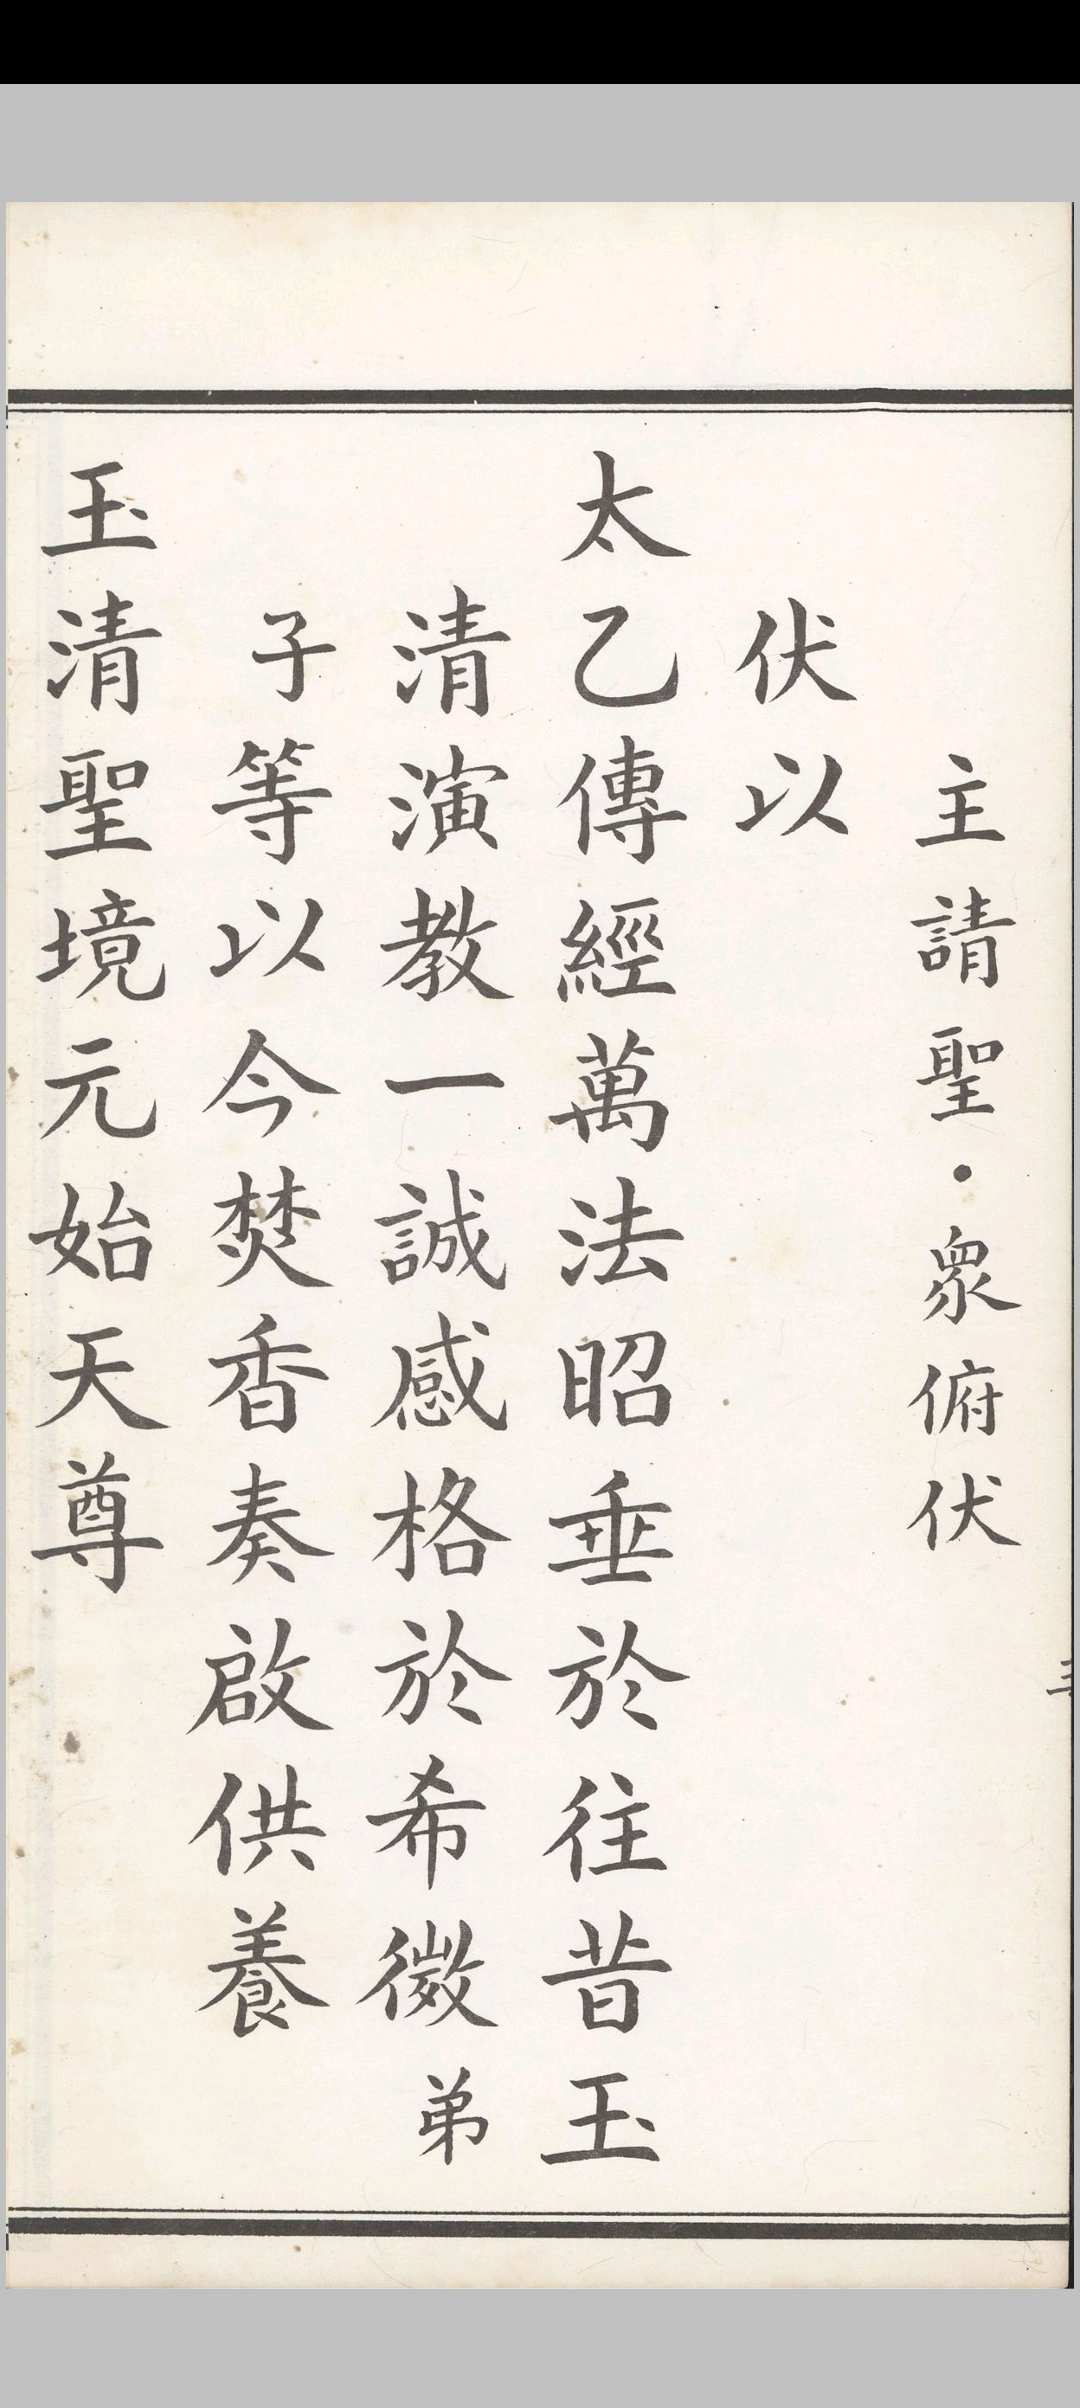 主請聖・衆俯伏
伏以
太乙傳經萬法昭垂於往昔玉
清演教一誠感格於希微弟
子等以今焚香奏啟供養
玉清聖境元始天尊